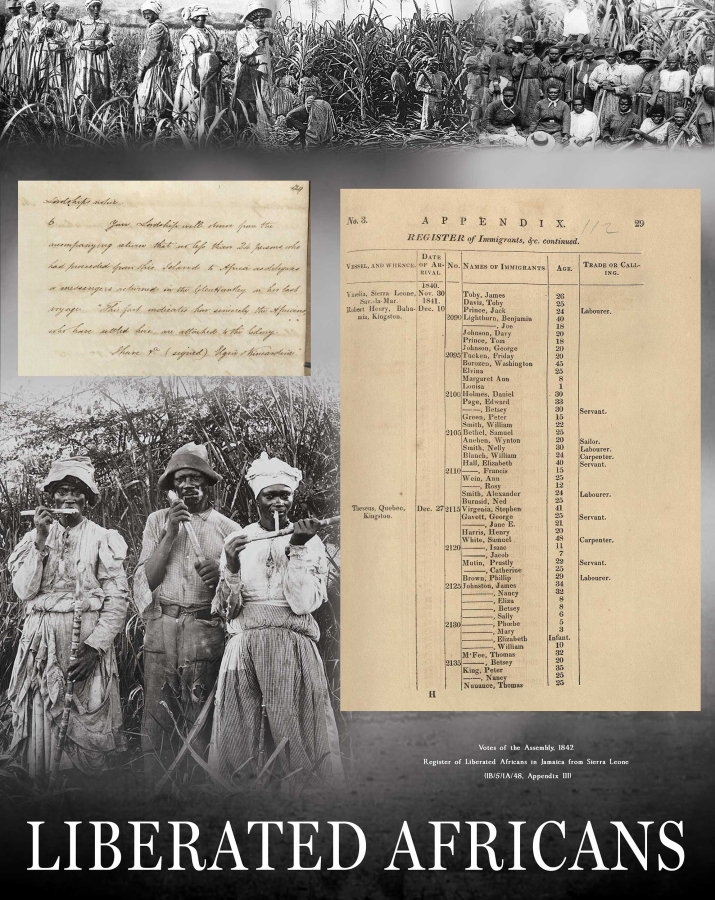 29
Lordships notice.
6 Your Lordship will observe from the
accompanying return that no less than 24 persons who
had proceeded from this Island to Africa as delegates
or messengers returned in the Glen Huntley on her last
voyage. This fact indicates how sincerely the Africans
who have settled here are attached to the Colony.
I have &c (signed) Elgin & Kincardine
No. 3. APPENDIX. 112 29
REGISTER of Immigrants, &c. continued.
VESSEL, AND WHENCE. DATE OF ARRIVAL No. NAMES OF IMMIGRANTS AGE. TRADE OR CALLING.
1840.
Sierra Leone, Nov. 30 Toby, James 26
Sav.-la-Mar. 1841. Davis, Toby 25
Robert Henry, Baha- Dec. 10 Prince, Jack 24 Labourer.
mas, Kingston. 2090 Lightburn, Benjamin 40
———, Joe 18
Johnson, Davy 20
Prince, Tom 18
Johnson, George 20
2095 Tucken, Friday 20
Borozen, Washington 45
Elvina 25
Margaret Ann 8
Louisa 1
2100 Holmes, Daniel 30
Page, Edward 33
——, Betsey 30 Servant.
Green, Peter 15
Smith, William 22
2105 Bethel, Samuel 25
Anchen, Wynton 20 Sailor.
Smith, Nelly 30 Labourer.
Blanch, William 24 Carpenter.
Hall, Elizabeth 40 Servant.
2110 ——, Francis 15
Wein, Ann 25
——, Rosy 12
Smith, Alexander 24 Labourer.
Burnsid, Ned 25
Theresa, Quebec, Dec. 27 2115 Virgenia, Stephen 41
Kingston. Gavett, George 25 Servant.
———, Jane E. 21
Harris, Henry 20
White, Samuel 48 Carpenter.
2120 ———, Isaac 11
———, Jacob 7
Mutin, Prustly 29 Servant.
———, Catherine 25
Brown, Phillip 29 Labourer.
2125 Johnston, James 34
———, Nancy 32
———, Eliza 8
———, Betsey 8
———, Sally 6
2130 ———, Phoebe 5
———, Mary 3
———, Elizabeth Infant.
———, William 10
M'Fee, Thomas 32
2135 ———, Betsey 20
King, Peter 35
——, Nancy 25
Nuuance, Thomas 25
H
Votes of the Assembly, 1842
Register of Liberated Africans in Jamaica from Sierra Leone
(1B/5/1A/48, Appendix III)
LIBERATED AFRICANS